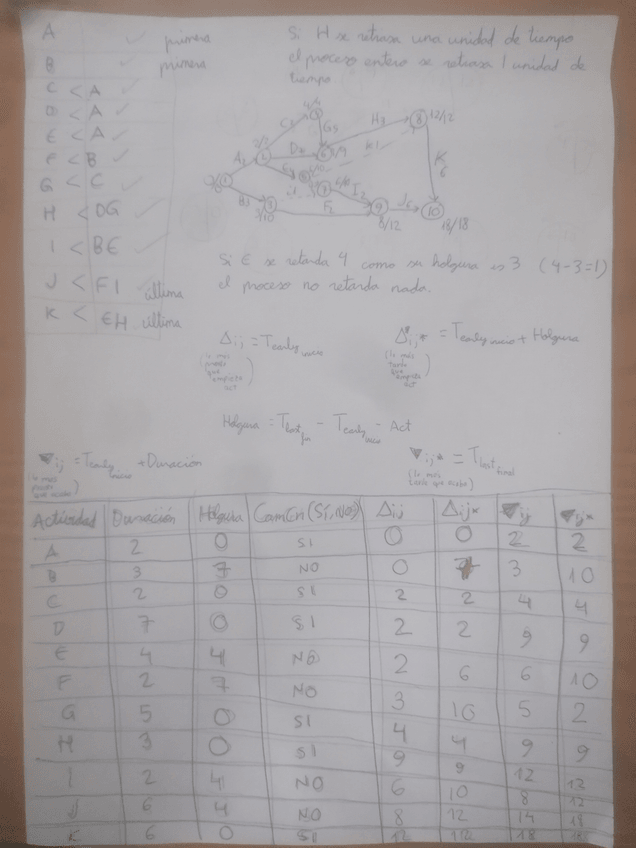 A ✓ primera
B ✓ primera
C < A ✓
D < A ✓
E < A ✓
F < B ✓
G < C ✓
H < DG ✓
I < BE ✓
J < FI última
K < EH última
Si H se retrasa una unidad de tiempo
el proceso entero se retrasa 1 unidad de
tiempo.
C2
G5
H3
8
12/12
A2
2
D7
6
9/9
K1
K
6
B3
3
3/10
F2
I2
9
8/12
J6
10
18/18
Si E se retarda 4 como su holgura es 3 (4-3=1)
el proceso no retarda nada.
Δij = Tearly inicio
(lo más pronto que empieza act)
Δij* = Tearly inicio + Holgura
(lo más tarde que empieza act)
Holgura = Tlast fin - Tearly inicio - Act
▼ij = Tearly inicio + Duración
(lo más pronto que acaba)
▼ij* = Tlast final
(lo más tarde que acaba)
Actividad Duración Holgura CamCri(SI,NO) Δij Δij* ▼ij ▼ij*
A 2 0 SI 0 0 2 2
B 3 7 NO 0 7 3 10
C 2 0 SI 2 2 4 4
D 7 0 SI 2 2 9 9
E 4 4 NO 2 6 6 10
F 2 7 NO 3 10 5 2
G 5 0 SI 4 4 9 9
H 3 0 SI 9 9 12 12
I 2 4 NO 6 10 8 12
J 6 4 NO 8 12 14 18
K 6 0 SI 12 12 18 18